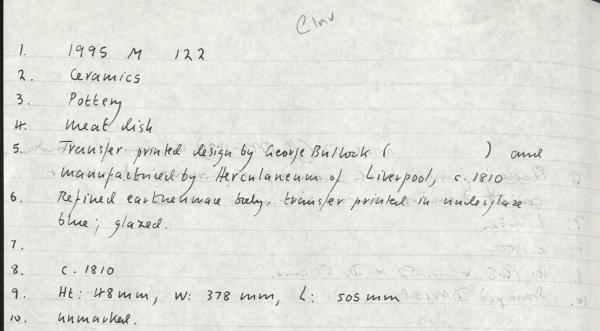 C Inv
1. 1995 M 122
2. Ceramics
3. Pottery
4. Meat dish
5. Transfer printed design by George Bullock ( ) and
manufactured by Herculaneum of Liverpool, c. 1810
6. Refined earthenware body, transfer printed in underglaze
blue; glazed.
7.
8. c. 1810
9. Ht: 48mm, W: 378 mm, L: 505 mm
10. Unmarked.